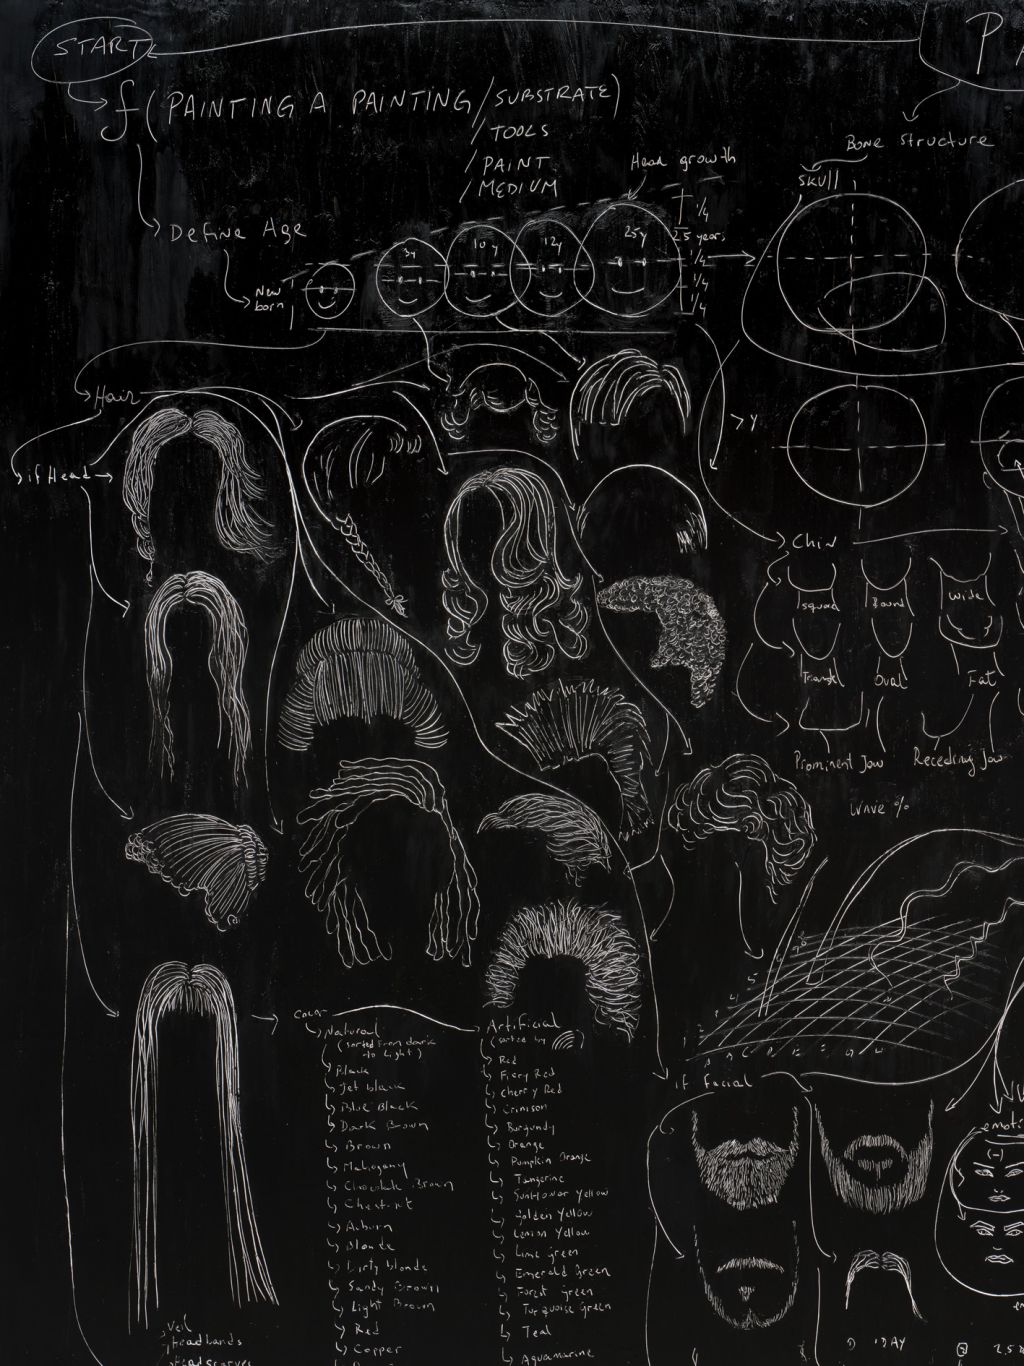 START
P
f (PAINTING A PAINTING / SUBSTRATE)
/ TOOLS
/ PAINT
/ MEDIUM
Head growth
Bone Structure
SKULL
Define Age
New
born
5y
10y
12y
25y
1/4
25 years
1/4
1/4
1/4
Hair
if Head
> Y
Chin
Square
Round
Wide
Triangle
Oval
Fat
Prominent Jaw
Receding Jaw
Wave %
Color
Natural
(sorted from dark
to light)
Black
Jet black
Blue Black
Dark Brown
Brown
Mahogany
Chocolate Brown
Chestnut
Auburn
Blonde
Dirty blonde
Sandy Brown
Light Brown
Red
Copper
Artificial
(sorted by
Red
Fiery Red
Cherry Red
Crimson
Burgundy
Orange
Pumpkin Orange
Tangerine
Sunflower Yellow
Golden Yellow
Lemon Yellow
Lime green
Emerald Green
Forest Green
Turquoise Green
Teal
Aquamarine
if facial
emoti
(-)
Veil
Headbands
Headscarves
1 DAY
2.5